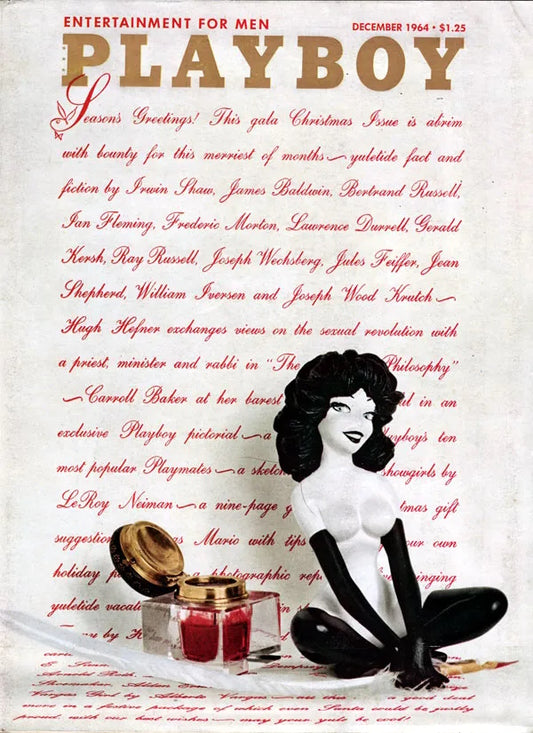 ENTERTAINMENT FOR MEN
DECEMBER 1964 • $1.25
PLAYBOY
Seasons Greetings! This gala Christmas Issue is abrim
with bounty for this merriest of months—yuletide fact and
fiction by Irwin Shaw, James Baldwin, Bertrand Russell,
Ian Fleming, Frederic Morton, Lawrence Durrell, Gerald
Kersh, Ray Russell, Joseph Wechsberg, Jules Feiffer, Jean
Shepherd, William Iversen and Joseph Wood Krutch—
Hugh Hefner exchanges views on the sexual revolution with
a priest, minister and rabbi in "The Philosophy"
—Carroll Baker at her barest in an
exclusive Playboy pictorial—a ten
most popular Playmates—a showgirls by
LeRoy Neiman—a nine-page gift
Mario with tips your own
holiday photographic
yuletide
by
Vargas Girl by Alberto Vargas a good deal
more in a festive package of which even Santa could be justly
proud, with our best wishes—may your yule be cool!